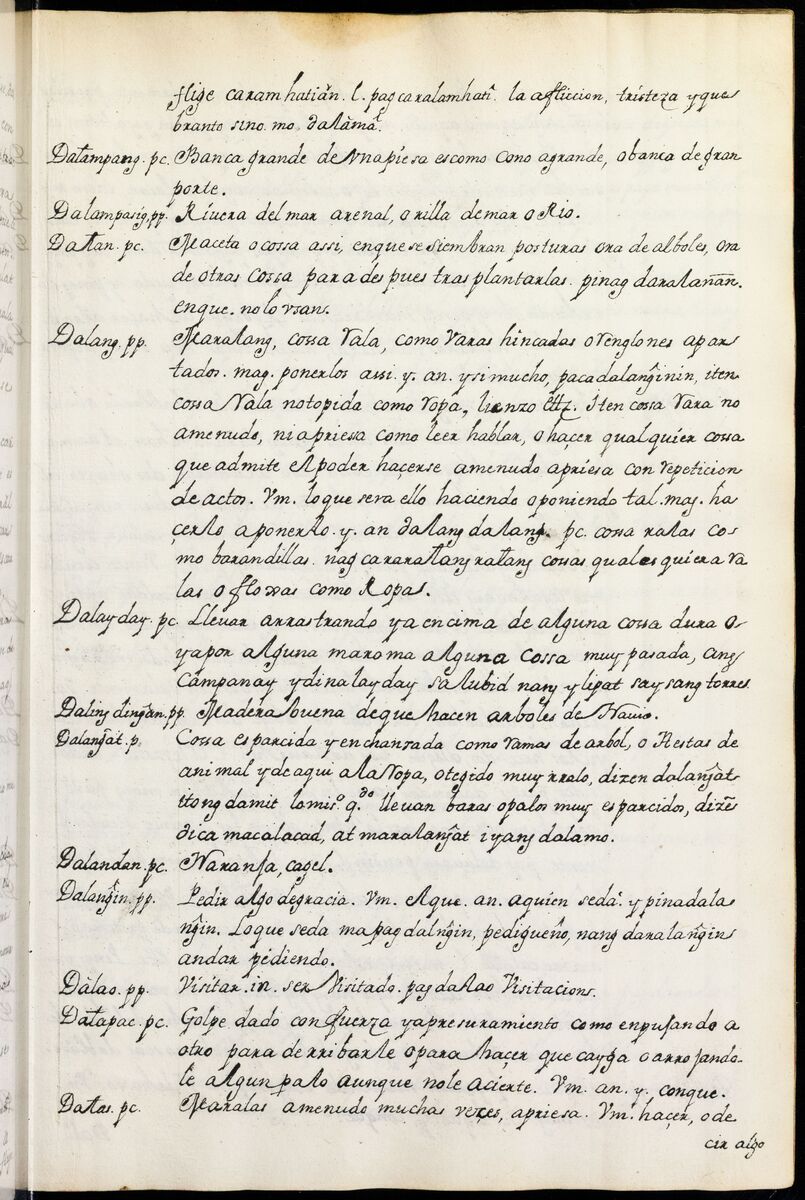 flige caramhatiãn. l. pagcaralamhatî. la afliccion, tristeza y que
branto sino. mo. dalàmâ.
Dalampang. pc. Banca grande de vna piesa es como cono a grande, o banca de gran
porte.
Dalampasig. pp. Rivera del mar arenal, o rilla de mar o Rio.
Dalan. pc. Maceta o cossa assi, en que se siembran posturas ora de alboles, ora
de otras cossa para despues trasplantarlas. pinag daralanãn.
en que. no lo vsan.
Dalang. pp. Maralang, cossa Rala, como varas hincadas o renglones apar
tados. mag. ponerlos assi. y. an. y si mucho, pacadalanĝinin, iten
cossa Rala no topida como ropa, lienzo ettz. Iten cossa rara no
amenudo, ni apriessa como leer hablar, o haçer qualquier cossa
que admite el poder haçerse amenudo apriesa con repeticion
de actos. Vm. lo que sera ello haciendo o poniendo tal. mag. ha
çerlo a ponerlo. y. an dalang dalang. pc. cossa ralas co-
mo barandillas. nag cararalang ralang cossas quales quiera ra
las o flossas como Ropas.
Dalayday. pc. Llevar arrastrando ya encima de alguna cossa dura o
ya por alguna maroma alguna cossa muy pasada, ang
campanay ydinalayday sa lubid nang ylipat say sang torres
Daling dingãn. pp. Madera buena de que hacen arboles de Navio.
Dalanĝat. p. Cossa esparcida y enchanzada como ramas de arbol, o Hestas de
animal y de aqui a la ropa, o tegido muy rralo, dizen dalanĝat
itong damit lo misº. q.do llevan baras o palos muy esparcidos, dizẽ
dica macalacad, at maralanĝat iyang dalamo.
Dalandan. pc. Naranja, cagel.
Dalanĝin. pp. Pedir algo de gracia. Vm. el que. an. a quien se da. y pinadala
nĝin. Lo que se da mapagdalnĝin, pedigueño, nang daralanĝin
andar pidiendo.
Dàlao. pp. Visitar. in. ser Visitado. pag dalao Visitacions.
Dalapac. pc. Golpe dado con fuerza y apresuramiento como enpujando a
otro para derribarle o para haçer que cayga o arrojando-
le algun palo aunque no le aciente. Vm. an. y. conque.
Dalas. pc. Maralas amenudo muchas vezes, apriesa. Vm. haçer, o de
cir algo